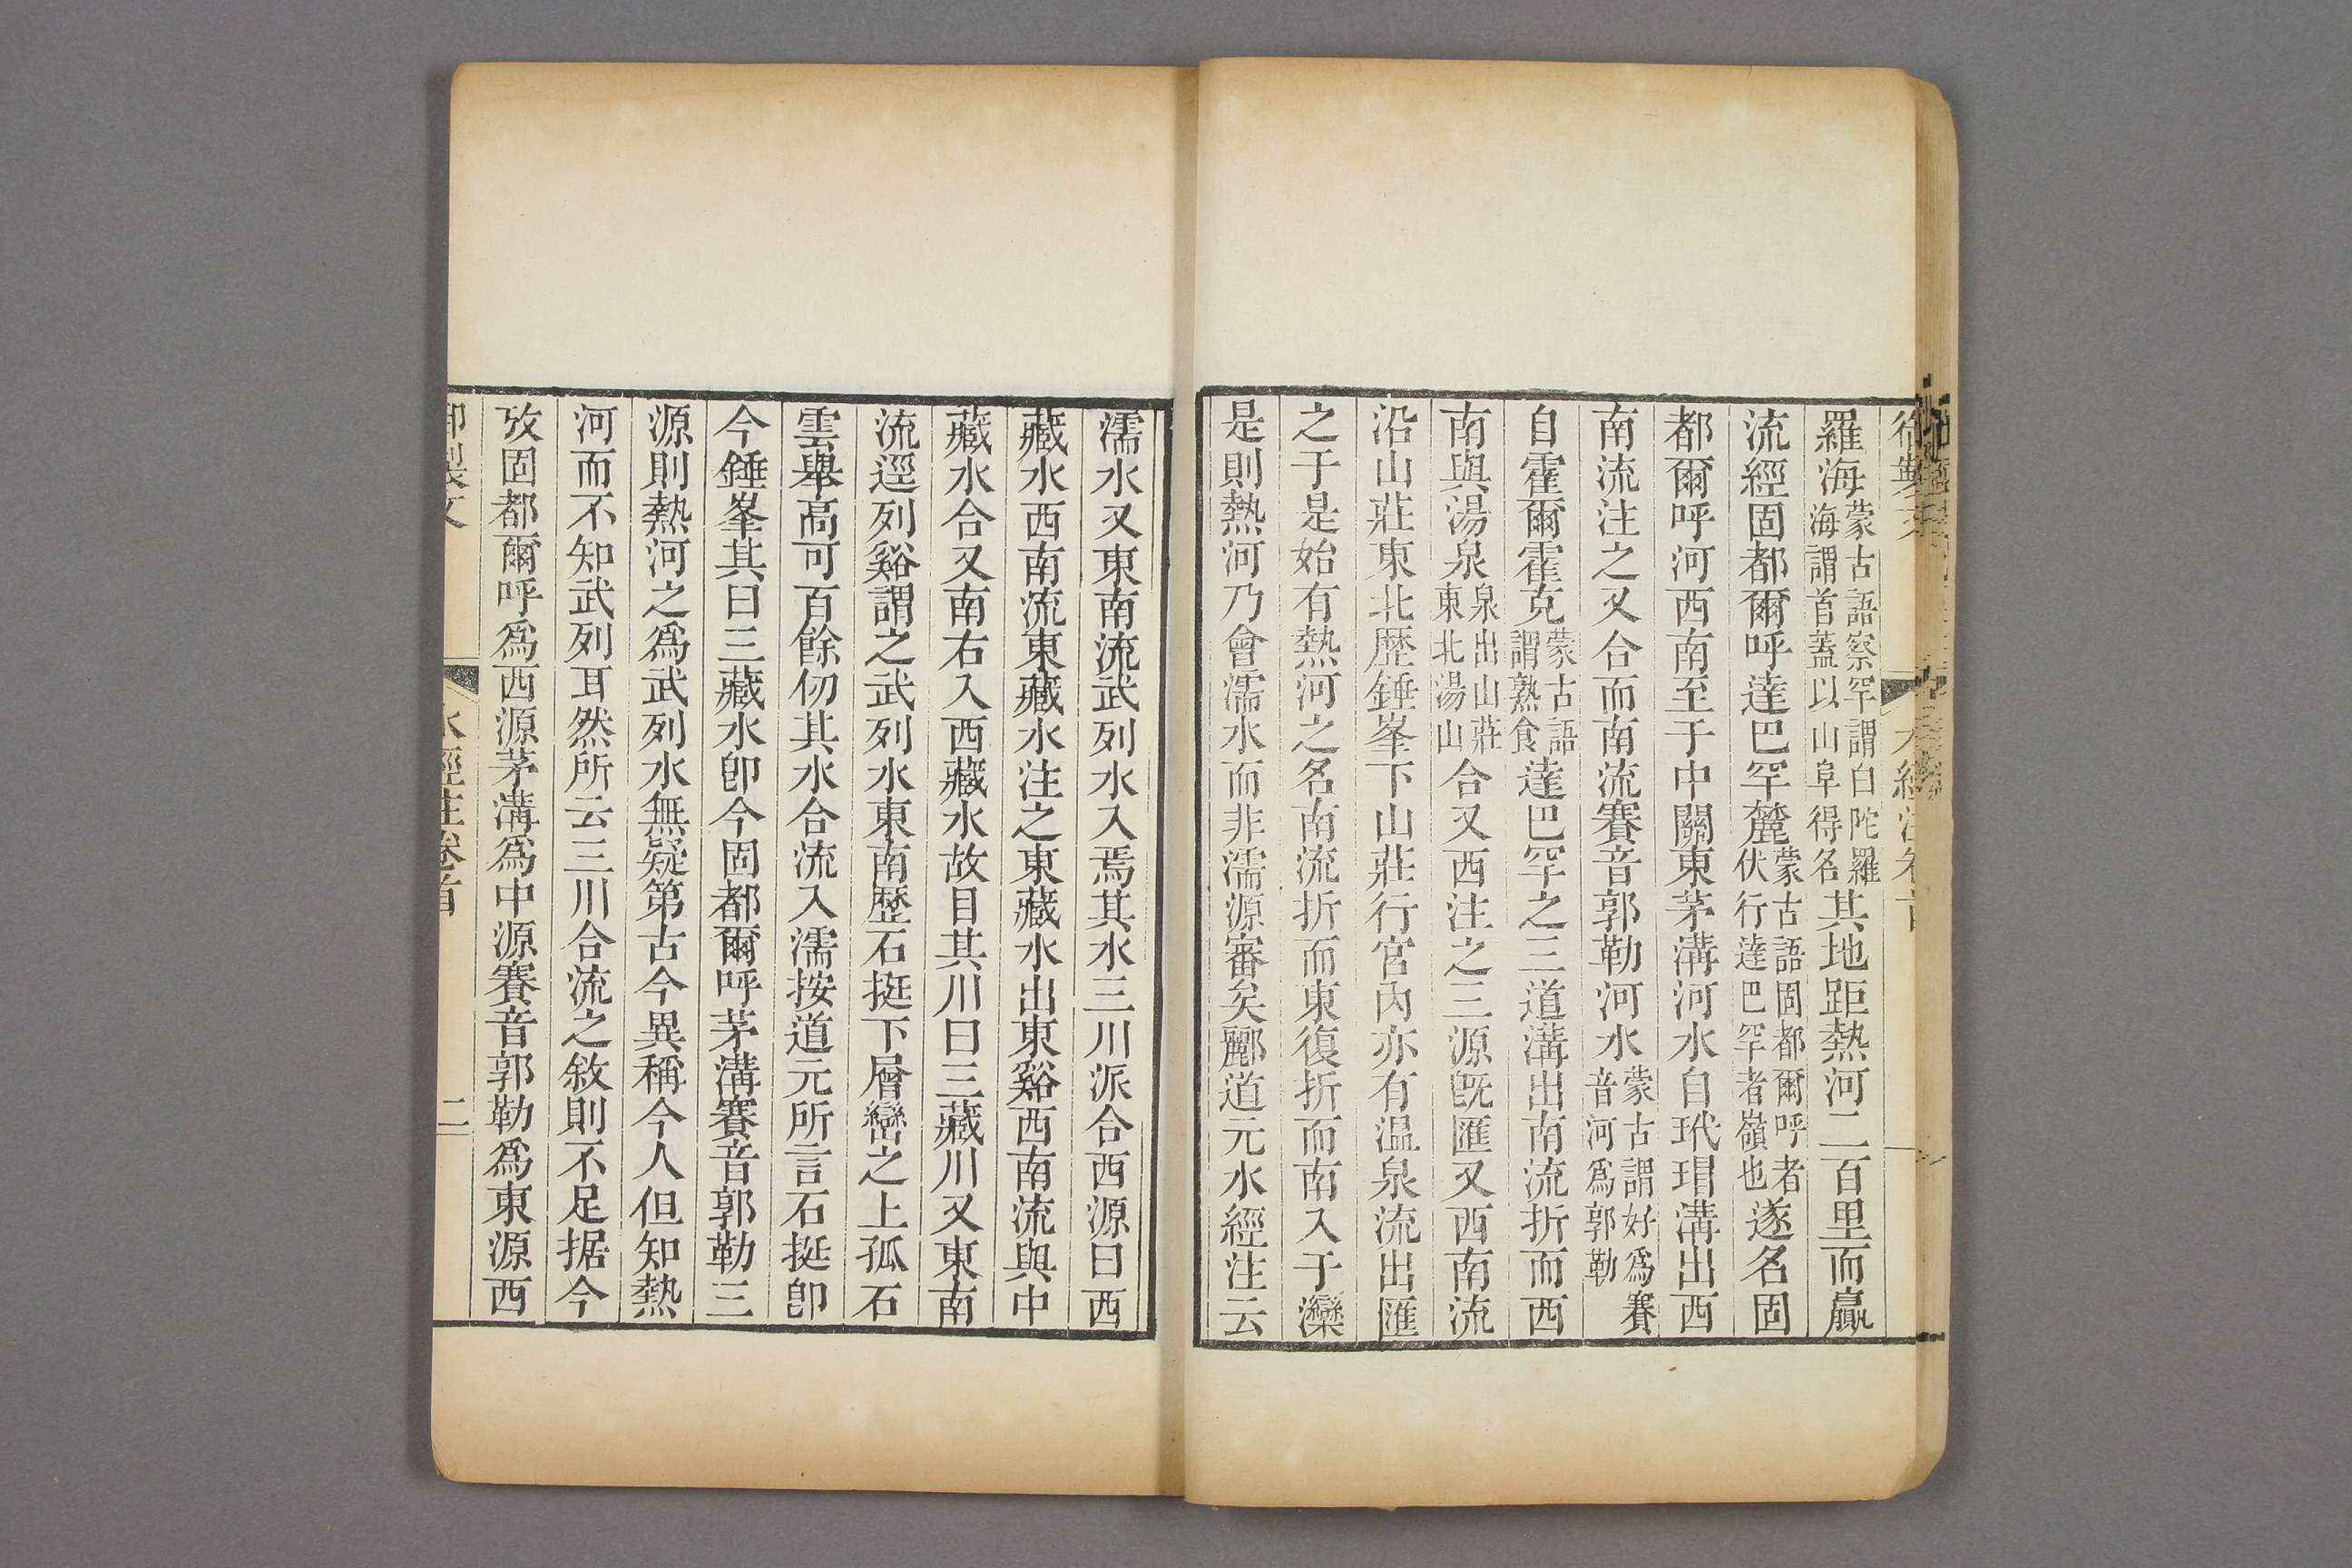 羅海蒙古語察罕謂白陀羅海謂首蓋以山阜得名其地距熱河二百里而贏
流經固都爾呼達巴罕麓蒙古語固都爾呼者伏行達巴罕者嶺也遂名固
都爾呼河西南至于中關東茅溝河水自玳瑁溝出西
南流注之又合而南流賽音郭勒河水蒙古謂好為賽音河為郭勒
自霍爾霍克蒙古語謂熟食達巴罕之三道溝出南流折而西
南與湯泉泉出山莊東北湯山合又西注之三源旣匯又西南流
沿山莊東北歷錘峯下山莊行宮內亦有温泉流出匯
之于是始有熱河之名南流折而東復折而南入于灤
是則熱河乃會濡水而非濡源審矣酈道元水經注云
濡水又東南流武列水入焉其水三川派合西源曰西
藏水西南流東藏水注之東藏水出東谿西南流與中
藏水合又南右入西藏水故目其川曰三藏川又東南
流逕列谿謂之武列水東南歷石挺下層巒之上孤石
雲舉高可百餘仞其水合流入濡按道元所言石挺卽
今錘峯其曰三藏水卽今固都爾呼茅溝賽音郭勒三
源則熱河之為武列水無疑第古今異稱今人但知熱
河而不知武列耳然所云三川合流之敘則不足据今
攷固都爾呼為西源茅溝為中源賽音郭勒為東源西
御製文
水經注卷首
二